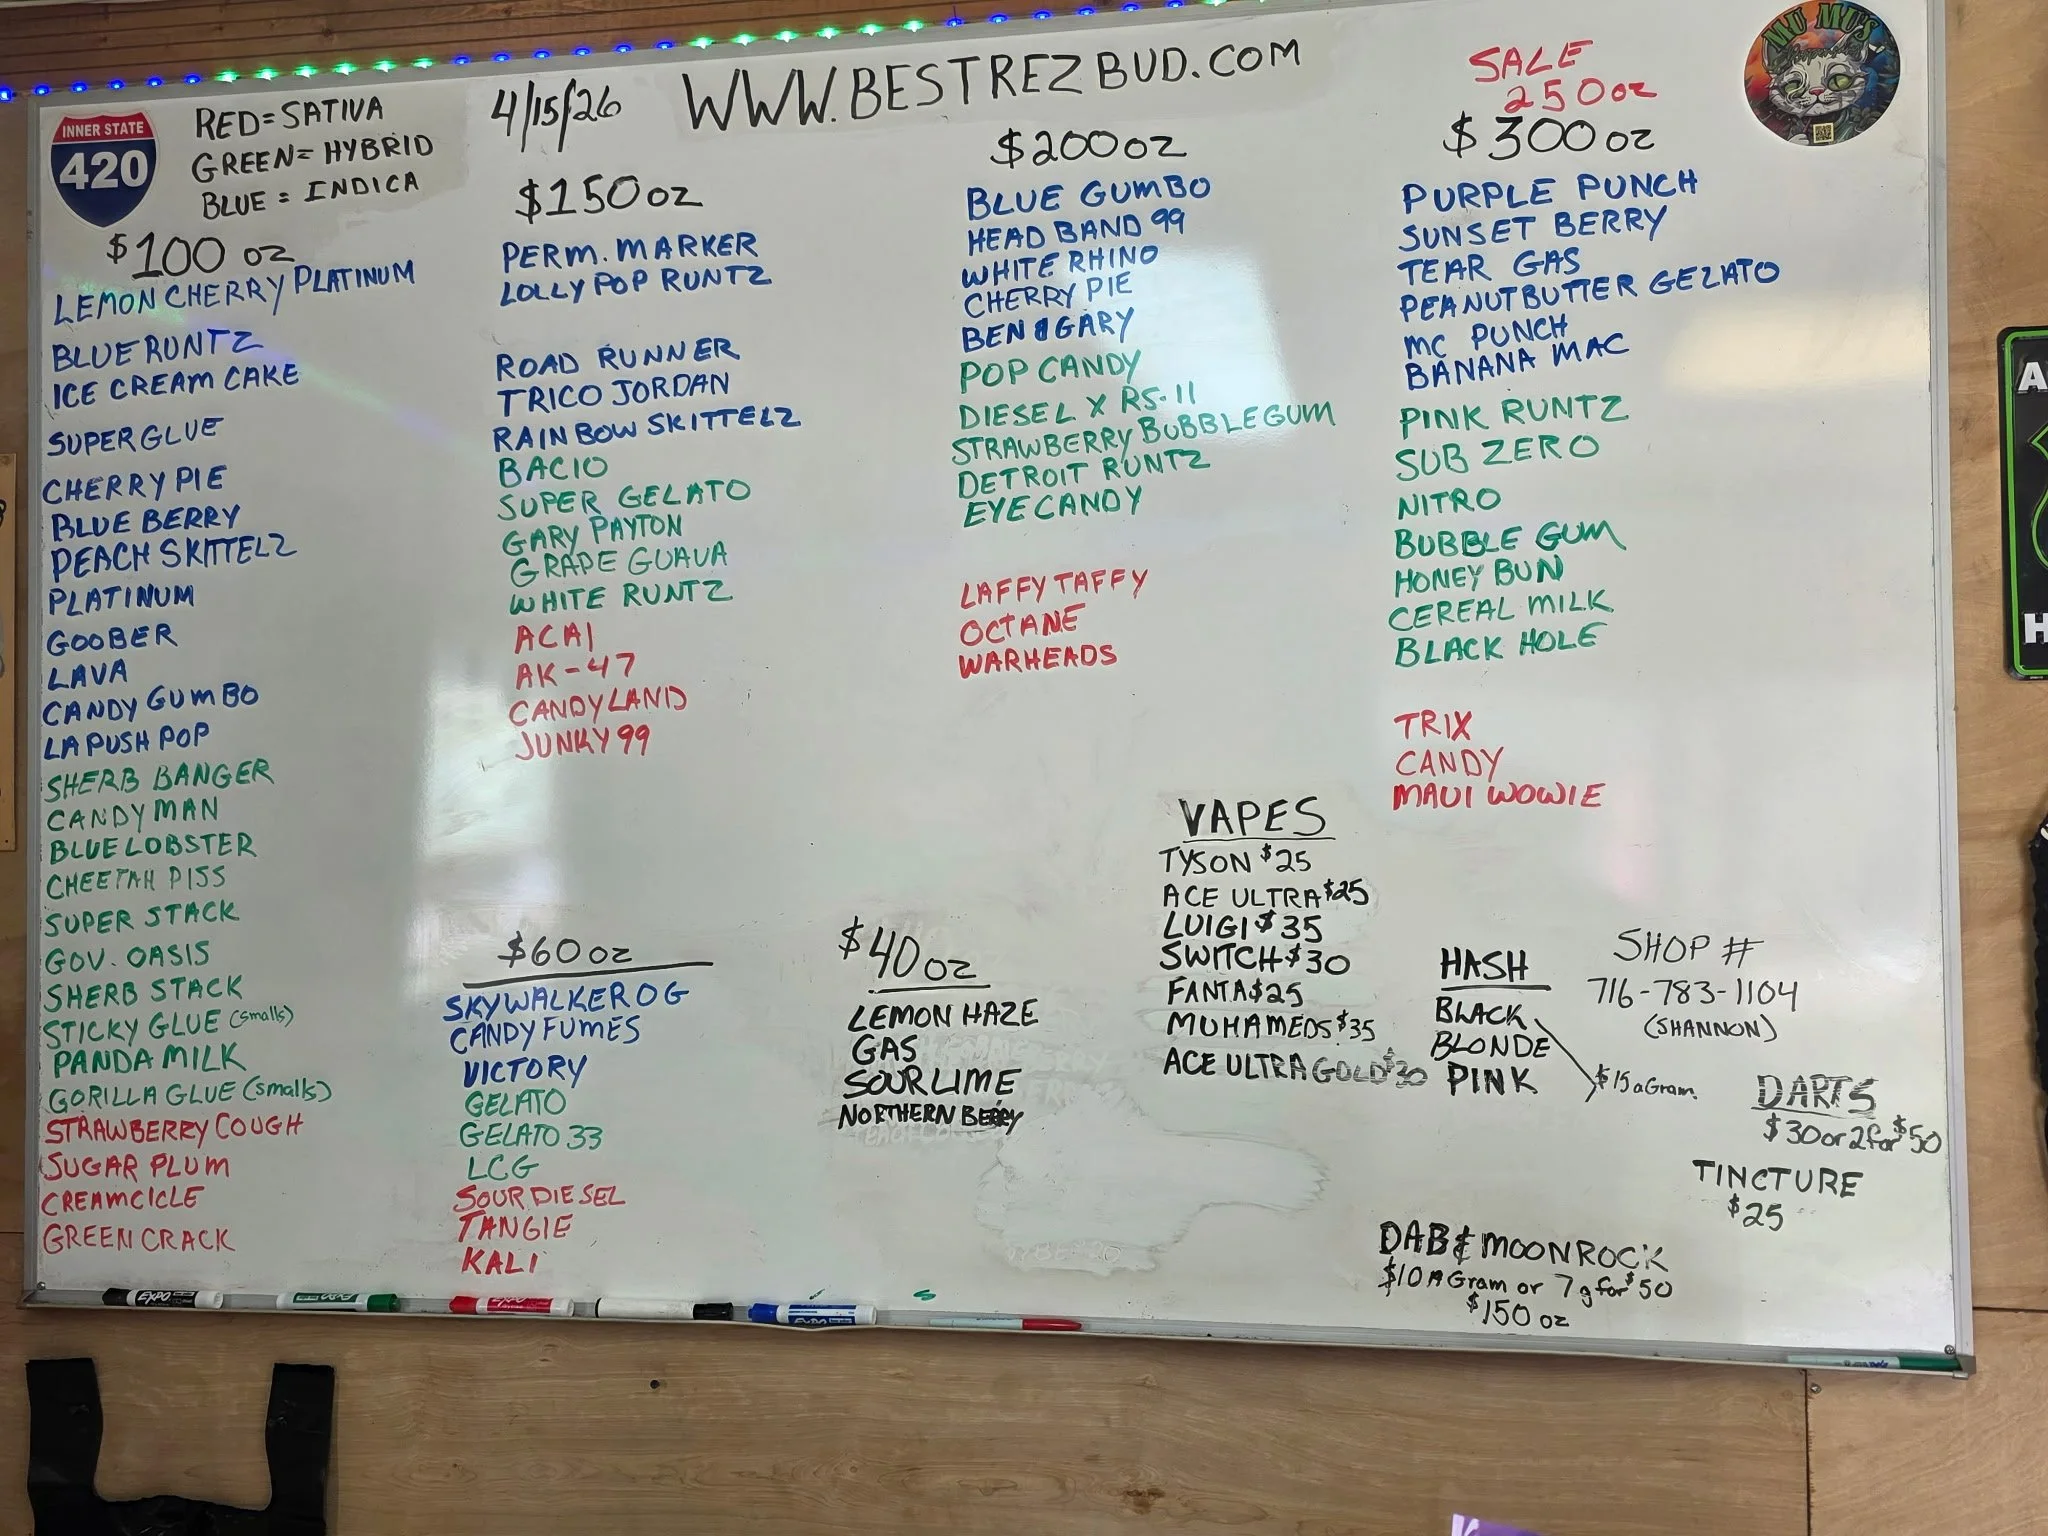 INNER STATE
420
RED=SATIVA
GREEN=HYBRID
BLUE=INDICA
4/15/26
WWW.BESTREZBUD.COM
MU MU'S
$100 oz
LEMON CHERRY PLATINUM
BLUE RUNTZ
ICE CREAM CAKE
SUPER GLUE
CHERRY PIE
BLUE BERRY
PEACH SKITTELZ
PLATINUM
GOOBER
LAVA
CANDY GUMBO
LA PUSH POP
SHERB BANGER
CANDY MAN
BLUE LOBSTER
CHEETAH PISS
SUPER STACK
GOV. OASIS
SHERB STACK
STICKY GLUE (smalls)
PANDA MILK
GORILLA GLUE (smalls)
STRAWBERRY COUGH
SUGAR PLUM
CREAMCICLE
GREEN CRACK
$150 oz
PERM. MARKER
LOLLY POP RUNTZ
ROAD RUNNER
TRICO JORDAN
RAINBOW SKITTELZ
BACIO
SUPER GELATO
GARY PAYTON
GRAPE GUAVA
WHITE RUNTZ
ACAI
AK-47
CANDYLAND
JUNKY 99
$60 oz
SKYWALKER OG
CANDY FUMES
VICTORY
GELATO
GELATO 33
LCG
SOUR DIESEL
TANGIE
KALI
$200 oz
BLUE GUMBO
HEAD BAND 99
WHITE RHINO
CHERRY PIE
BEN & GARY
POP CANDY
DIESEL X RS-11
STRAWBERRY BUBBLEGUM
DETROIT RUNTZ
EYE CANDY
LAFFY TAFFY
OCTANE
WARHEADS
$40 oz
LEMON HAZE
GAS
SOUR LIME
NORTHERN BERRY
SALE
250 oz
$300 oz
PURPLE PUNCH
SUNSET BERRY
TEAR GAS
PEANUTBUTTER GELATO
MC PUNCH
BANANA MAC
PINK RUNTZ
SUB ZERO
NITRO
BUBBLE GUM
HONEY BUN
CEREAL MILK
BLACK HOLE
TRIX
CANDY
MAUI WOWIE
VAPES
TYSON $25
ACE ULTRA $25
LUIGI $35
SWITCH $30
FANTA $25
MUHAMEDS $35
ACE ULTRA GOLD $30
HASH
BLACK
BLONDE
PINK
$15 a Gram
SHOP #
716-783-1104
(SHANNON)
DARTS
$30 or 2 for $50
TINCTURE
$25
DAB & MOONROCK
$10 A Gram or 7g for $50
$150 oz
EXPO